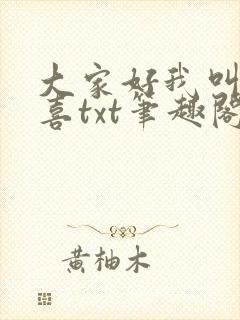 大家好我叫
喜txt筆趣閣
黄柚木